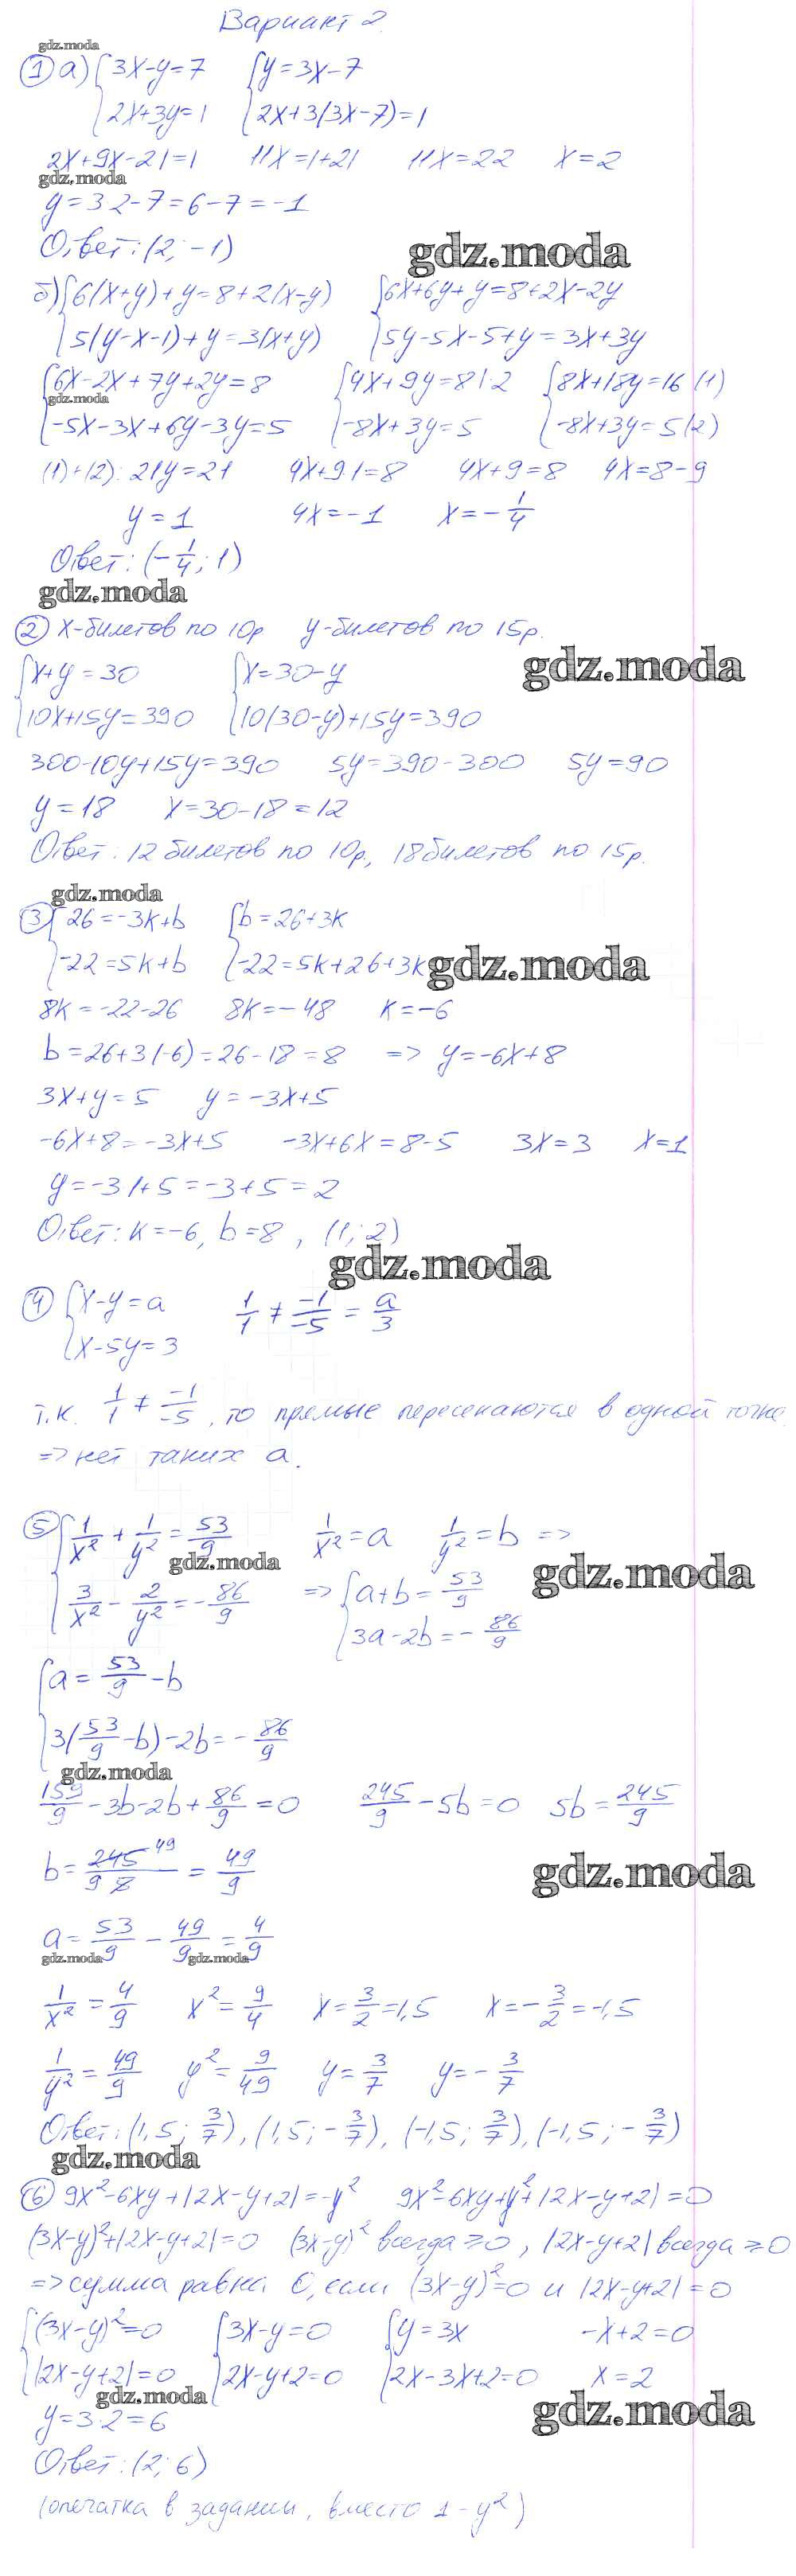 Вариант 2.
gdz.moda
① а) {3x-y=7 {y=3x-7
{2x+3y=1 {2x+3(3x-7)=1
2x+9x-21=1 11x=1+21 11x=22 x=2
gdz.moda
y=3·2-7=6-7=-1
Ответ: (2; -1)
gdz.moda
б) {6(x+y)+y=8+2(x-y) {6x+6y+y=8+2x-2y
{5(y-x-1)+y=3(x+y) {5y-5x-5+y=3x+3y
{6x-2x+7y+2y=8 {4x+9y=8 |·2 {8x+18y=16 (1)
gdz.moda
{-5x-3x+6y-3y=5 {-8x+3y=5 {-8x+3y=5 (2)
(1)+(2): 21y=21 4x+9·1=8 4x+9=8 4x=8-9
y=1 4x=-1 x=-1/4
Ответ: (-1/4; 1)
gdz.moda
② x-билетов по 10р y-билетов по 15р.
gdz.moda
{x+y=30 {x=30-y
{10x+15y=390 {10(30-y)+15y=390
300-10y+15y=390 5y=390-300 5y=90
y=18 x=30-18=12
Ответ: 12 билетов по 10р, 18 билетов по 15р.
gdz.moda
③ {26=-3k+b {b=26+3k
{-22=5k+b {-22=5k+26+3k
gdz.moda
8k=-22-26 8k=-48 k=-6
b=26+3(-6)=26-18=8 => y=-6x+8
3x+y=5 y=-3x+5
-6x+8=-3x+5 -3x+6x=8-5 3x=3 x=1
y=-3·1+5=-3+5=2
Ответ: k=-6, b=8, (1; 2)
gdz.moda
④ {x-y=a 1/1 ≠ -1/-5 = a/3
{x-5y=3
т.к. 1/1 ≠ -1/-5, то прямые пересекаются в одной точке
=> нет таких a.
⑤ {1/x²+1/y²=53/9 1/x²=a 1/y²=b =>
gdz.moda
gdz.moda
{3/x²-2/y²=-86/9 => {a+b=53/9
{3a-2b=-86/9
{a=53/9-b
{3(53/9-b)-2b=-86/9
gdz.moda
159/9-3b-2b+86/9=0 245/9-5b=0 5b=245/9
b=245 49/9·5=49/9
gdz.moda
a=53/9-49/9=4/9
gdz.moda gdz.moda
1/x²=4/9 x²=9/4 x=3/2=1,5 x=-3/2=-1,5
1/y²=49/9 y²=9/49 y=3/7 y=-3/7
Ответ: (1,5; 3/7), (1,5; -3/7), (-1,5; 3/7), (-1,5; -3/7)
gdz.moda
⑥ 9x²-6xy+|2x-y+2|=-y² 9x²-6xy+y²+|2x-y+2|=0
(3x-y)²+|2x-y+2|=0 (3x-y)² всегда ≥0, |2x-y+2| всегда ≥0
=> сумма равна 0, если (3x-y)²=0 и |2x-y+2|=0
{(3x-y)²=0 {3x-y=0 {y=3x -x+2=0
{|2x-y+2|=0 {2x-y+2=0 {2x-3x+2=0 x=2
gdz.moda
gdz.moda
y=3·2=6
Ответ: (2; 6)
(опечатка в задании, вместо 1 -y²)